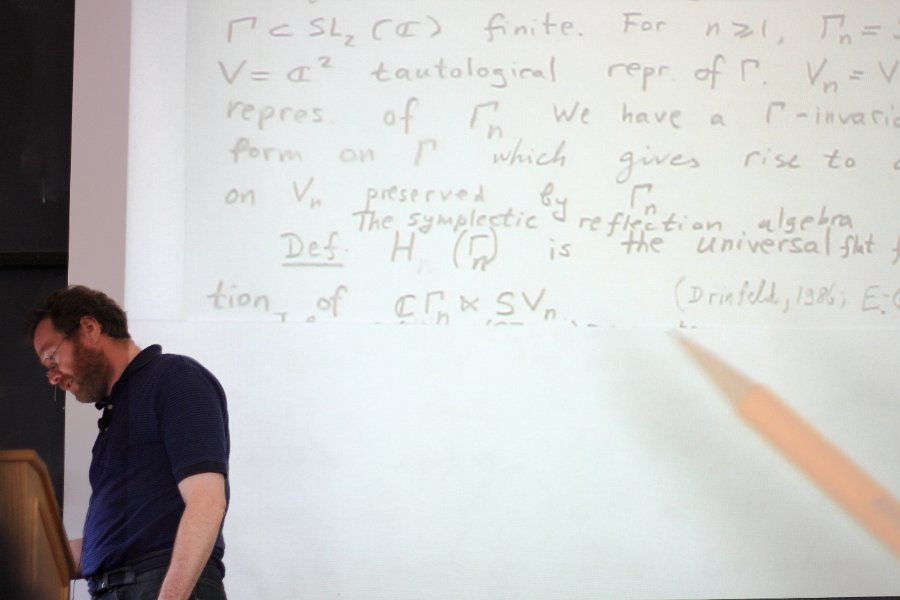 Γ ⊂ SL₂(ℂ) finite. For n≥1, Γₙ =
V = ℂ² tautological repr. of Γ. Vₙ = V
repres. of Γₙ. We have a Γ-invaric
form on Γ which gives rise to
on Vₙ preserved by Γₙ
The symplectic reflection algebra
Def. H (Γₙ) is the universal flat f
tion of ℂΓₙ ⋉ SVₙ (Drinfeld, 1986; E:G